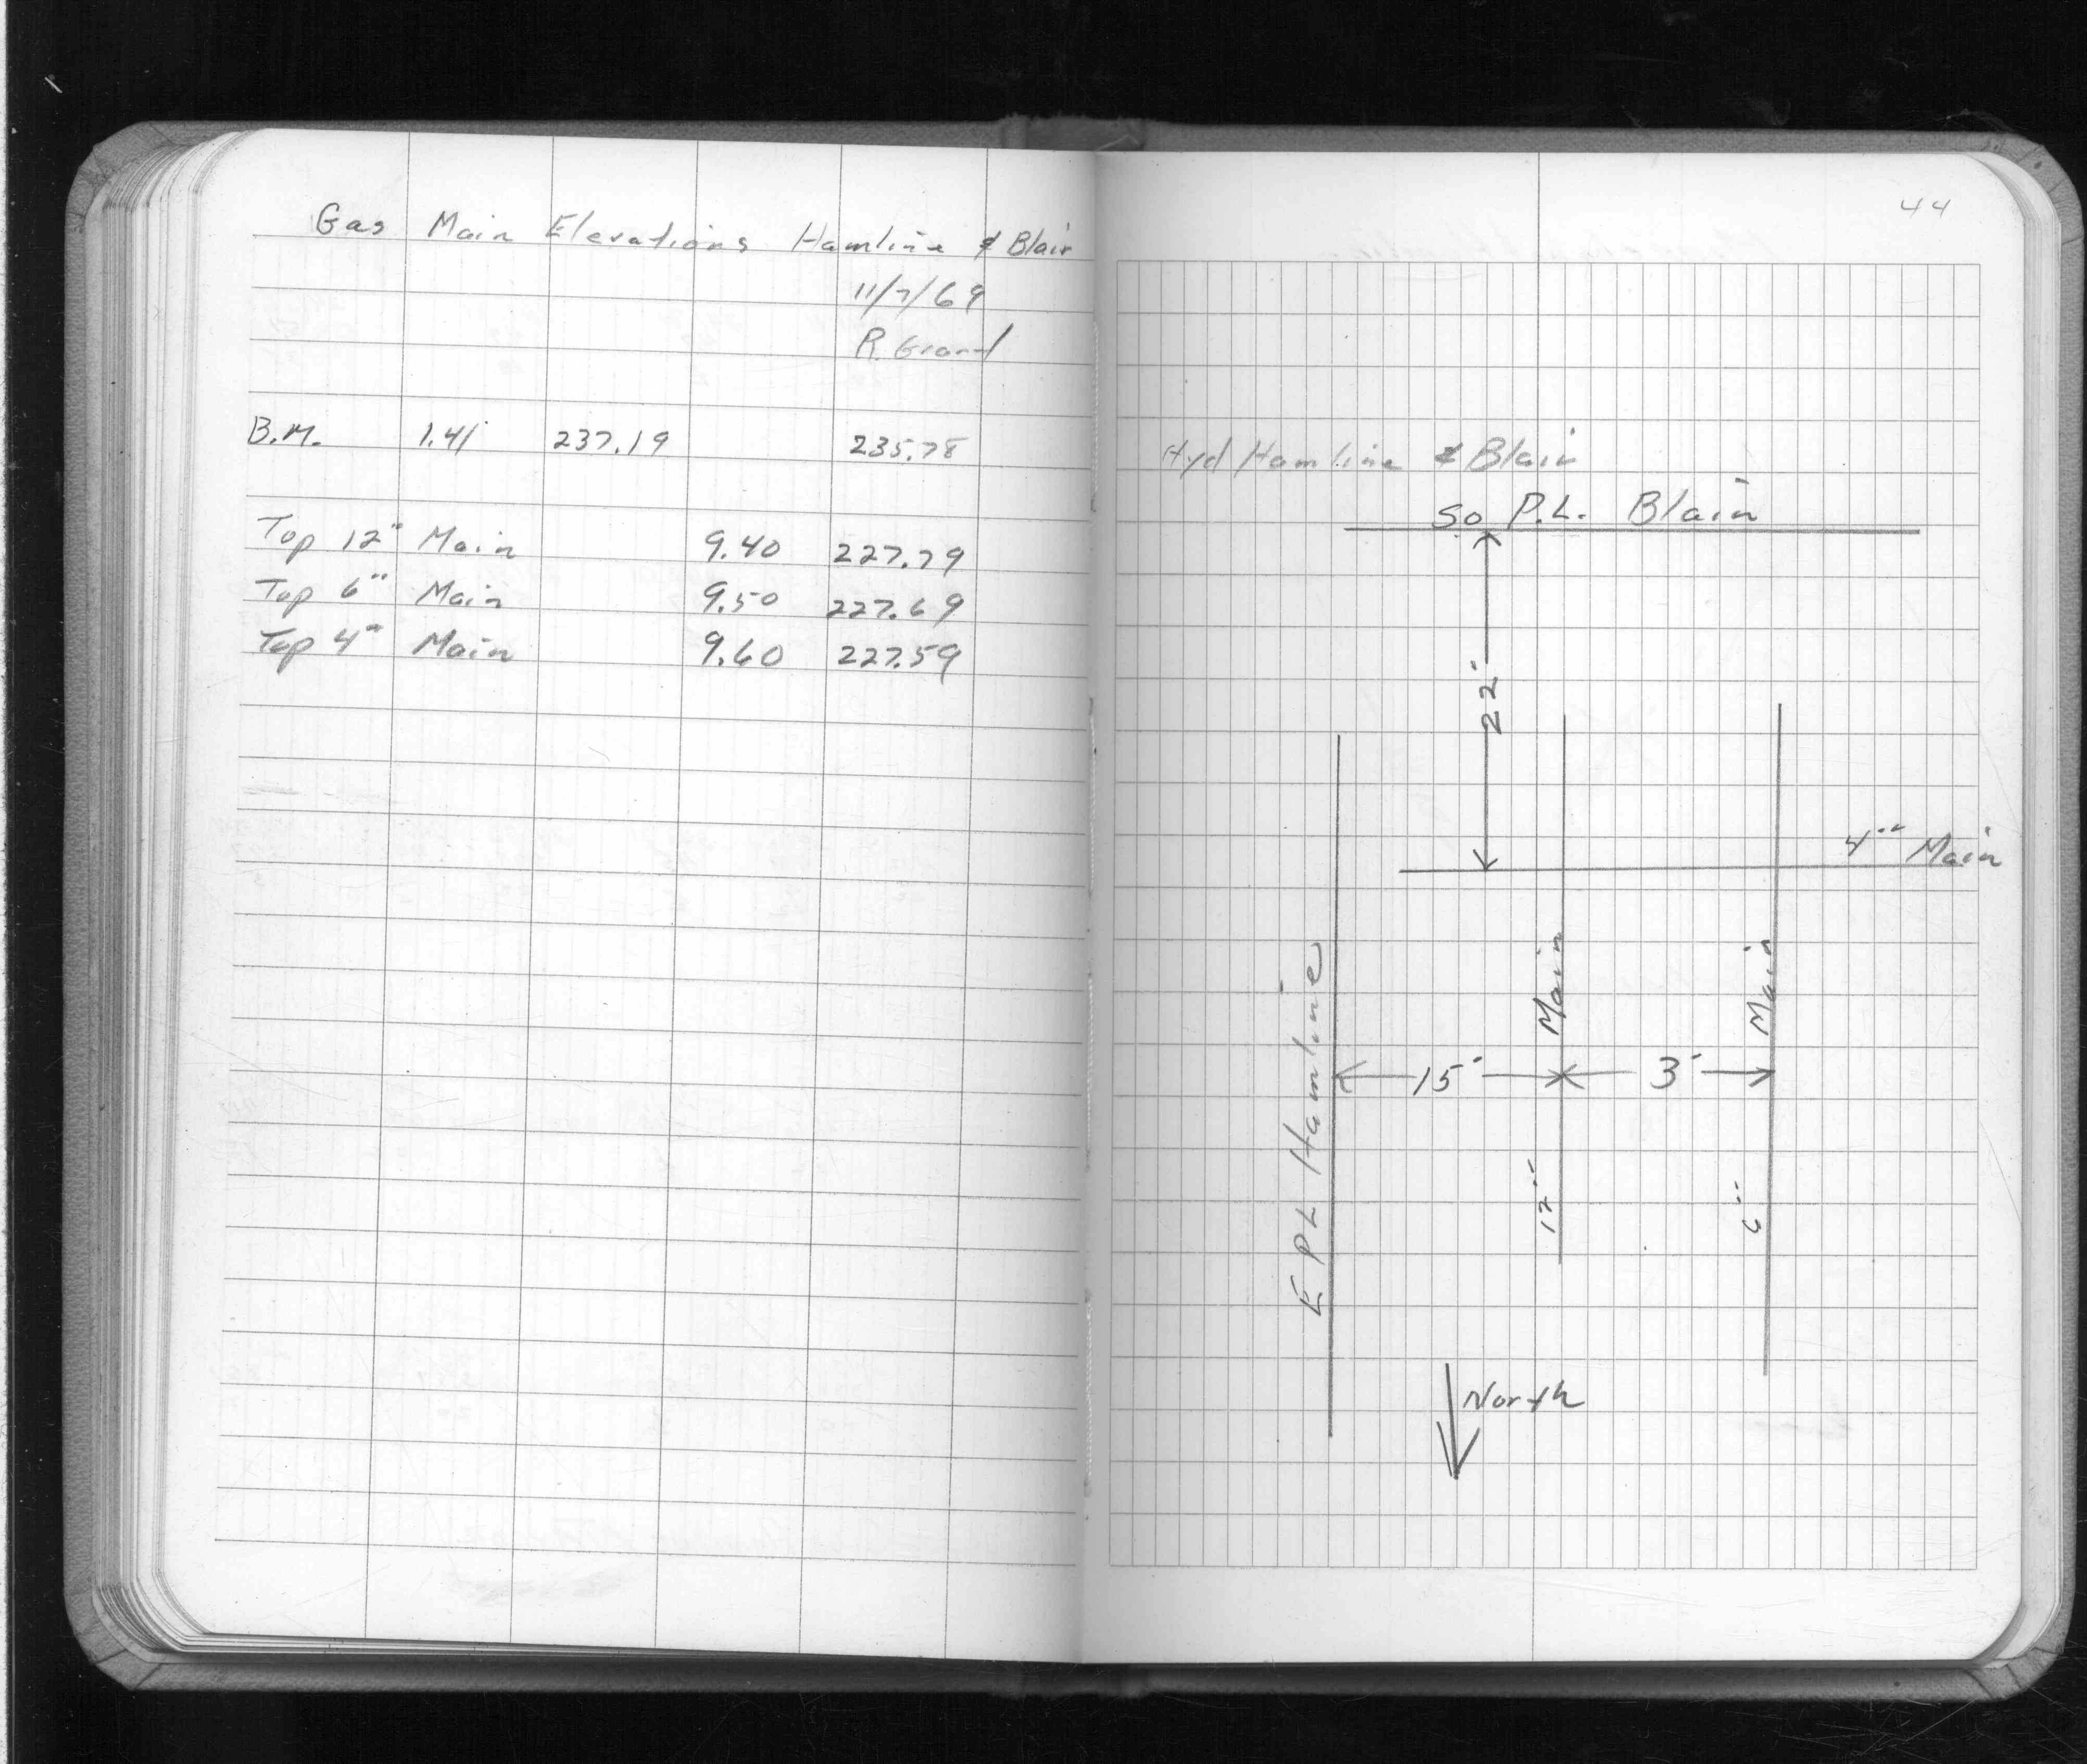 Gas Main Elevations Hamline & Blair
11/7/69
R. Grant
B.M. 1.41 237.19 235.78
Top 12" Main 9.40 227.79
Top 6" Main 9.50 227.69
Top 4" Main 9.60 227.59
44
Hyd Hamline & Blair
So P.L. Blair
22'
4" Main
E PL Hamline
15'
12" Main
3'
6" Main
North